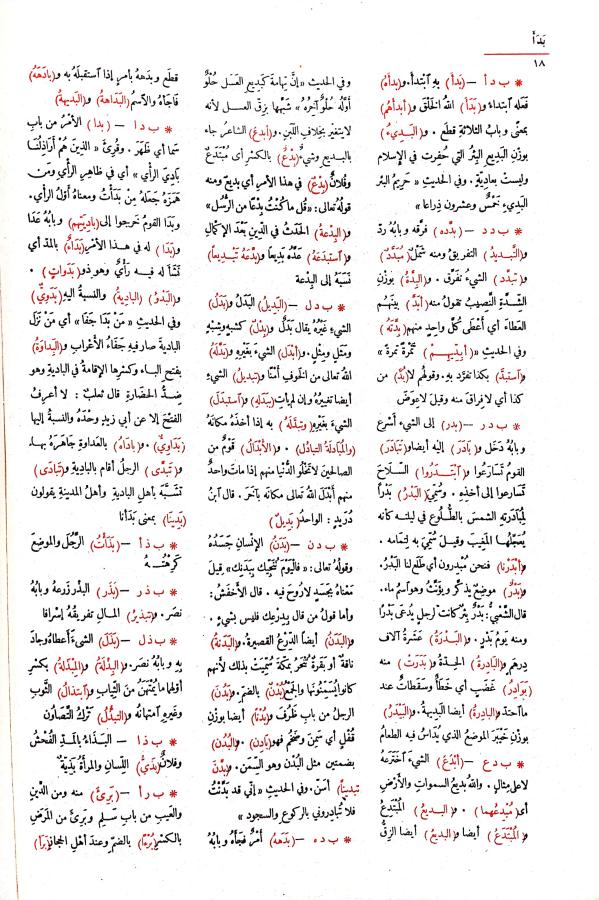 بَدَأَ
١٨
* ب د أ – (بَدَأَ) بِهِ ابْتَدأَ. و(بدأه)
فَعَله ابتداء و(بَدَأَ) اللهُ الخَلْقَ و(أبدأهُم)
بمعنًى وبابُ الثلاثةِ قطع . و(البَدِيءُ)
بوزن البَديع البِئْر التي حُفرت في الإسلام
وليست بعاديّةٍ . وفي الحديث « حَرِيمُ البِئر
البَدِيءِ خَمْسٌ وعشرون ذِراعا »
* ب د د – (بدّده) فرّقه وبابُه ردّ
و(التَّبديد) التفريق ومنه شَمْلٌ (مُبَدَّدٌ)
و(تَبَدّد) الشيءُ تَفَرّق . و(البِدَّةُ) بوزن
الشِّدّة النَّصيبُ تقولُ منه (أبَدَّ) بينَهم
العَطاءَ أي أعْطَى كُلَّ واحدٍ منهم (بِدّتَهُ)
وفي الحديث « (أبِدِّيهِم) تَمْرَةً تمرةً »
و(استبدَّ) بكذا تفرّد به. وقولُهم لا(بُدَّ) من
كذا أي لا فِراقَ منه وقيلَ لا عِوَضَ
* ب د ر – (بدر) إلى الشيءِ أسْرع
وبابُه دَخل و(بادَرَ) إليه أيضا و(تَبادَرَ)
القومُ تَسارَعوا و(ابْتَدَرُوا) السِّلاحَ
تَسارعوا إلى أخذِهِ . وسُمِّيَ (البَدْرُ) بَدْرًا
لِمُبادَرتِهِ الشمسَ بالطُّلوع في ليلته كأنه
يُعجِّلها المَغِيبَ وقيلَ سُمِّيَ به لتمامه .
و(أبْدَرْنا) فنحن مُبْدِرون أي طَلَعَ لنا البَدْرُ.
و(بَدْرٌ) موضِعٌ يذكّر ويؤنّث وهو اسمُ ماء.
قال الشَّعْبيُّ: بَدْرٌ بئرٌ كانت لرجلٍ يُدعى بَدْرًا
ومنه يومُ بَدْرٍ . و(البَدْرَةُ) عَشَرَةُ آلاف
دِرهم و(البادِرةُ) الحِدّةُ و(بَدَرَتْ) منه
(بَوادِرُ) غَضَبٍ أي خَطَأٌ وسَقَطاتٌ عند
ما احتدّ و(البادِرةُ) أيضا البَديهةُ. و(البَيْدَرُ)
بوزن خَيْبَر الموضعُ الذي يُداسُ فيه الطعامُ
* ب د ع – (أبْدَعَ) الشيءَ اخْتَرَعَهُ
لا على مِثالٍ . واللهُ بديعُ السمواتِ والأرضِ
أي (مُبْدِعُهما) . و(البديعُ) المُبْتَدِعُ
و(المُبْتَدَعُ) أيضا و(البديعُ) أيضا الزِّقُّ
وفي الحديث «إنّ تِهامةَ كَبَديعِ العسَل حُلْوٌ
أوّلُه حُلْوٌ آخِرُهُ» شَبَّهها بزِقِّ العسل لأنه
لا يتغيّر بخِلافِ اللبنِ. و(أبدعَ) الشاعرُ جاء
بالبديع وشيءٌ(بِدْعٌ) بالكسر أي مُبْتَدَعٌ
وفُلانٌ(بِدْعٌ) في هذا الأمرِ أي بديعٌ ومنه
قولُهُ تعالى: «قُلْ ما كُنتُ بِدْعًا من الرُّسُلِ»
و(البِدْعةُ) الحَدَثُ في الدِّينِ بعدَ الإكمال
و(استبدَعَهُ) عَدّهُ بَديعًا و(بدَّعَهُ تَبْديعًا)
نسَبَهُ إلى البِدْعة
* ب د ل – (البَدِيلُ) البَدَلُ و(بَدَلُ)
الشيءِ غَيْرُه يقال بَدَلٌ و(بِدْلٌ) كشَبَهٍ وشِبْهٍ
ومَثَلٍ ومِثْلٍ. و(أبْدَلَ) الشيءَ بغيرِهِ و(بدّلَهُ)
اللهُ تعالى من الخوفِ أمْنًا و(تبديلُ) الشيءِ
أيضا تغييرُهُ وإن لم يأتِ(ببَدَلِهِ) و(استبدَلَ)
الشيءَ بغيرِه و(تبدّلَهُ) به إذا أخذهُ مكانَهُ
و(المُبادلةُ التبادُلُ) . و(الأبْدالُ) قومٌ من
الصالحين لا تَخْلو الدُّنيا منهم إذا مات واحدٌ
منهم أبْدَلَ اللهُ تعالى مكانَه بآخَرَ . قال ابنُ
دُرَيدٍ : الواحدُ(بَديلٌ)
* ب د ن – (بَدَنُ) الإنسانِ جَسَدُهُ
وقولُه تعالى: «فاليَوْمَ نُنَجِّيكَ بِبَدَنِكَ» قيلَ
معناهُ بجسدٍ لا رُوحَ فيه . قال الأخْفَشُ:
وأما قولُ من قال بِدِرْعِكَ فليس بشيء.
و(البَدَنُ) أيضاً الدِّرْعُ القصيرةُ. و(البَدَنةُ)
ناقةٌ أو بقرةٌ تُنْحَرُ بمكّةَ سُمِّيَتْ بذلك لأنهم
كانوا يُسَمِّنُونها والجمعُ(بُدْنٌ) بالضم. و(بَدُنَ)
الرجلُ من باب ظَرُفَ و(بُدْنًا) أيضا بوزن
قُفْلٍ أي سَمِنَ وضَخُمَ فهو(بادِنٌ) . و(البُدُنُ)
بضمتين مثل البُدْن وهو السِّمَن. و(بدَّنَ
تبدينًا) أسَنّ. وفي الحديث «إنّي قد بَدَّنْتُ
فلا تُبادِروني بالركوعِ والسجودِ »
* ب د ه – (بَدَهَهُ) أمْرٌ فَجَأَهُ وبابُهُ
قطَع وبدَههُ بأمرٍ إذا استقبلَهُ به و(بادَهَهُ)
فاجَأَهُ والاسمُ (البَداهةُ) و(البَديهةُ)
* ب د ا – (بدا) الأمْرُ من باب
سَما أي ظَهَرَ . وقُرِئَ «الذينَ هُمْ أراذِلُنَا
بَادِيَ الرَّأيِ » أي في ظاهرِ الرأي ومَن
هَمَزَهُ جعلَهُ من بَدَأتُ ومعناهُ أوّلَ الرأي.
وبَدا القومُ خرجوا إلى(باديتِهم) وبابُه عَدا
و(بَدا) له في هذا الأمرِ(بَدَاءٌ) بالمدّ أي
نَشأَ له فيه رأيٌ وهو ذو(بَدَوات) .
و(البَدْوُ) (البادِيةُ) والنسبةُ إليه(بَدَوِيٌّ)
وفي الحديث «مَنْ بَدَا جَفَا» أي من نَزَلَ
الباديةَ صار فيه جَفاءُ الأعراب و(البَداوَةُ)
بفتح الباء وكسرِها الإقامةُ في الباديةِ وهو
ضِدُّ الحَضارةِ قال ثعلبٌ : لا أعرِفُ
الفتحَ إلا عن أبي زيدٍ وحْدَهُ والنسبةُ إليها
(بَداوِيٌّ) . و(باداهُ) بالعداوةِ جاهَرَهُ بها.
و(تَبدّى) الرجلُ أقام بالبادِيةِ و(تبادَى)
تَشبَّهَ بأهلِ الباديةِ وأهلُ المدينةِ يقولون
(بَدِينا) بمعنى بَدَأنا
* ب ذ أ – (بَذَأتُ) الرَّجُلَ والموضِعَ
كَرِهْتُهُ
* ب ذ ر – (بَذَر) البذرَ زرعهُ وبابُهُ
نصَر . و(تبذيرُ) المالِ تفريقُهُ إسرافا
* ب ذ ل – (بَذَلَ) الشيءَ أعطاهُ وجادَ
به وبابُه نصَر. و(البِذْلةُ) و(المِبْذَلةُ) بكسرِ
أوّلهما ما يُمْتَهَنُ من الثِّيابِ و(ابتذالُ) الثَّوبِ
وغيرِهِ امتِهانُه و(التبَذُّلُ) تَرْكُ التَّصاوُنِ
* ب ذ ا – البَذاءُ بالمدّ الفُحْشُ
وفلانٌ(بَذِيُّ) اللِّسانِ والمرأةُ بَذِيّةٌ
* ب ر أ – (بَرِئَ) منه ومن الدَّينِ
والعيبِ من بابِ سَلِم وبَرِئَ من المَرَضِ
بالكسرِ (بُرْءًا) بالضمّ وعندَ أهلِ الحِجازِ(بَرَأ)